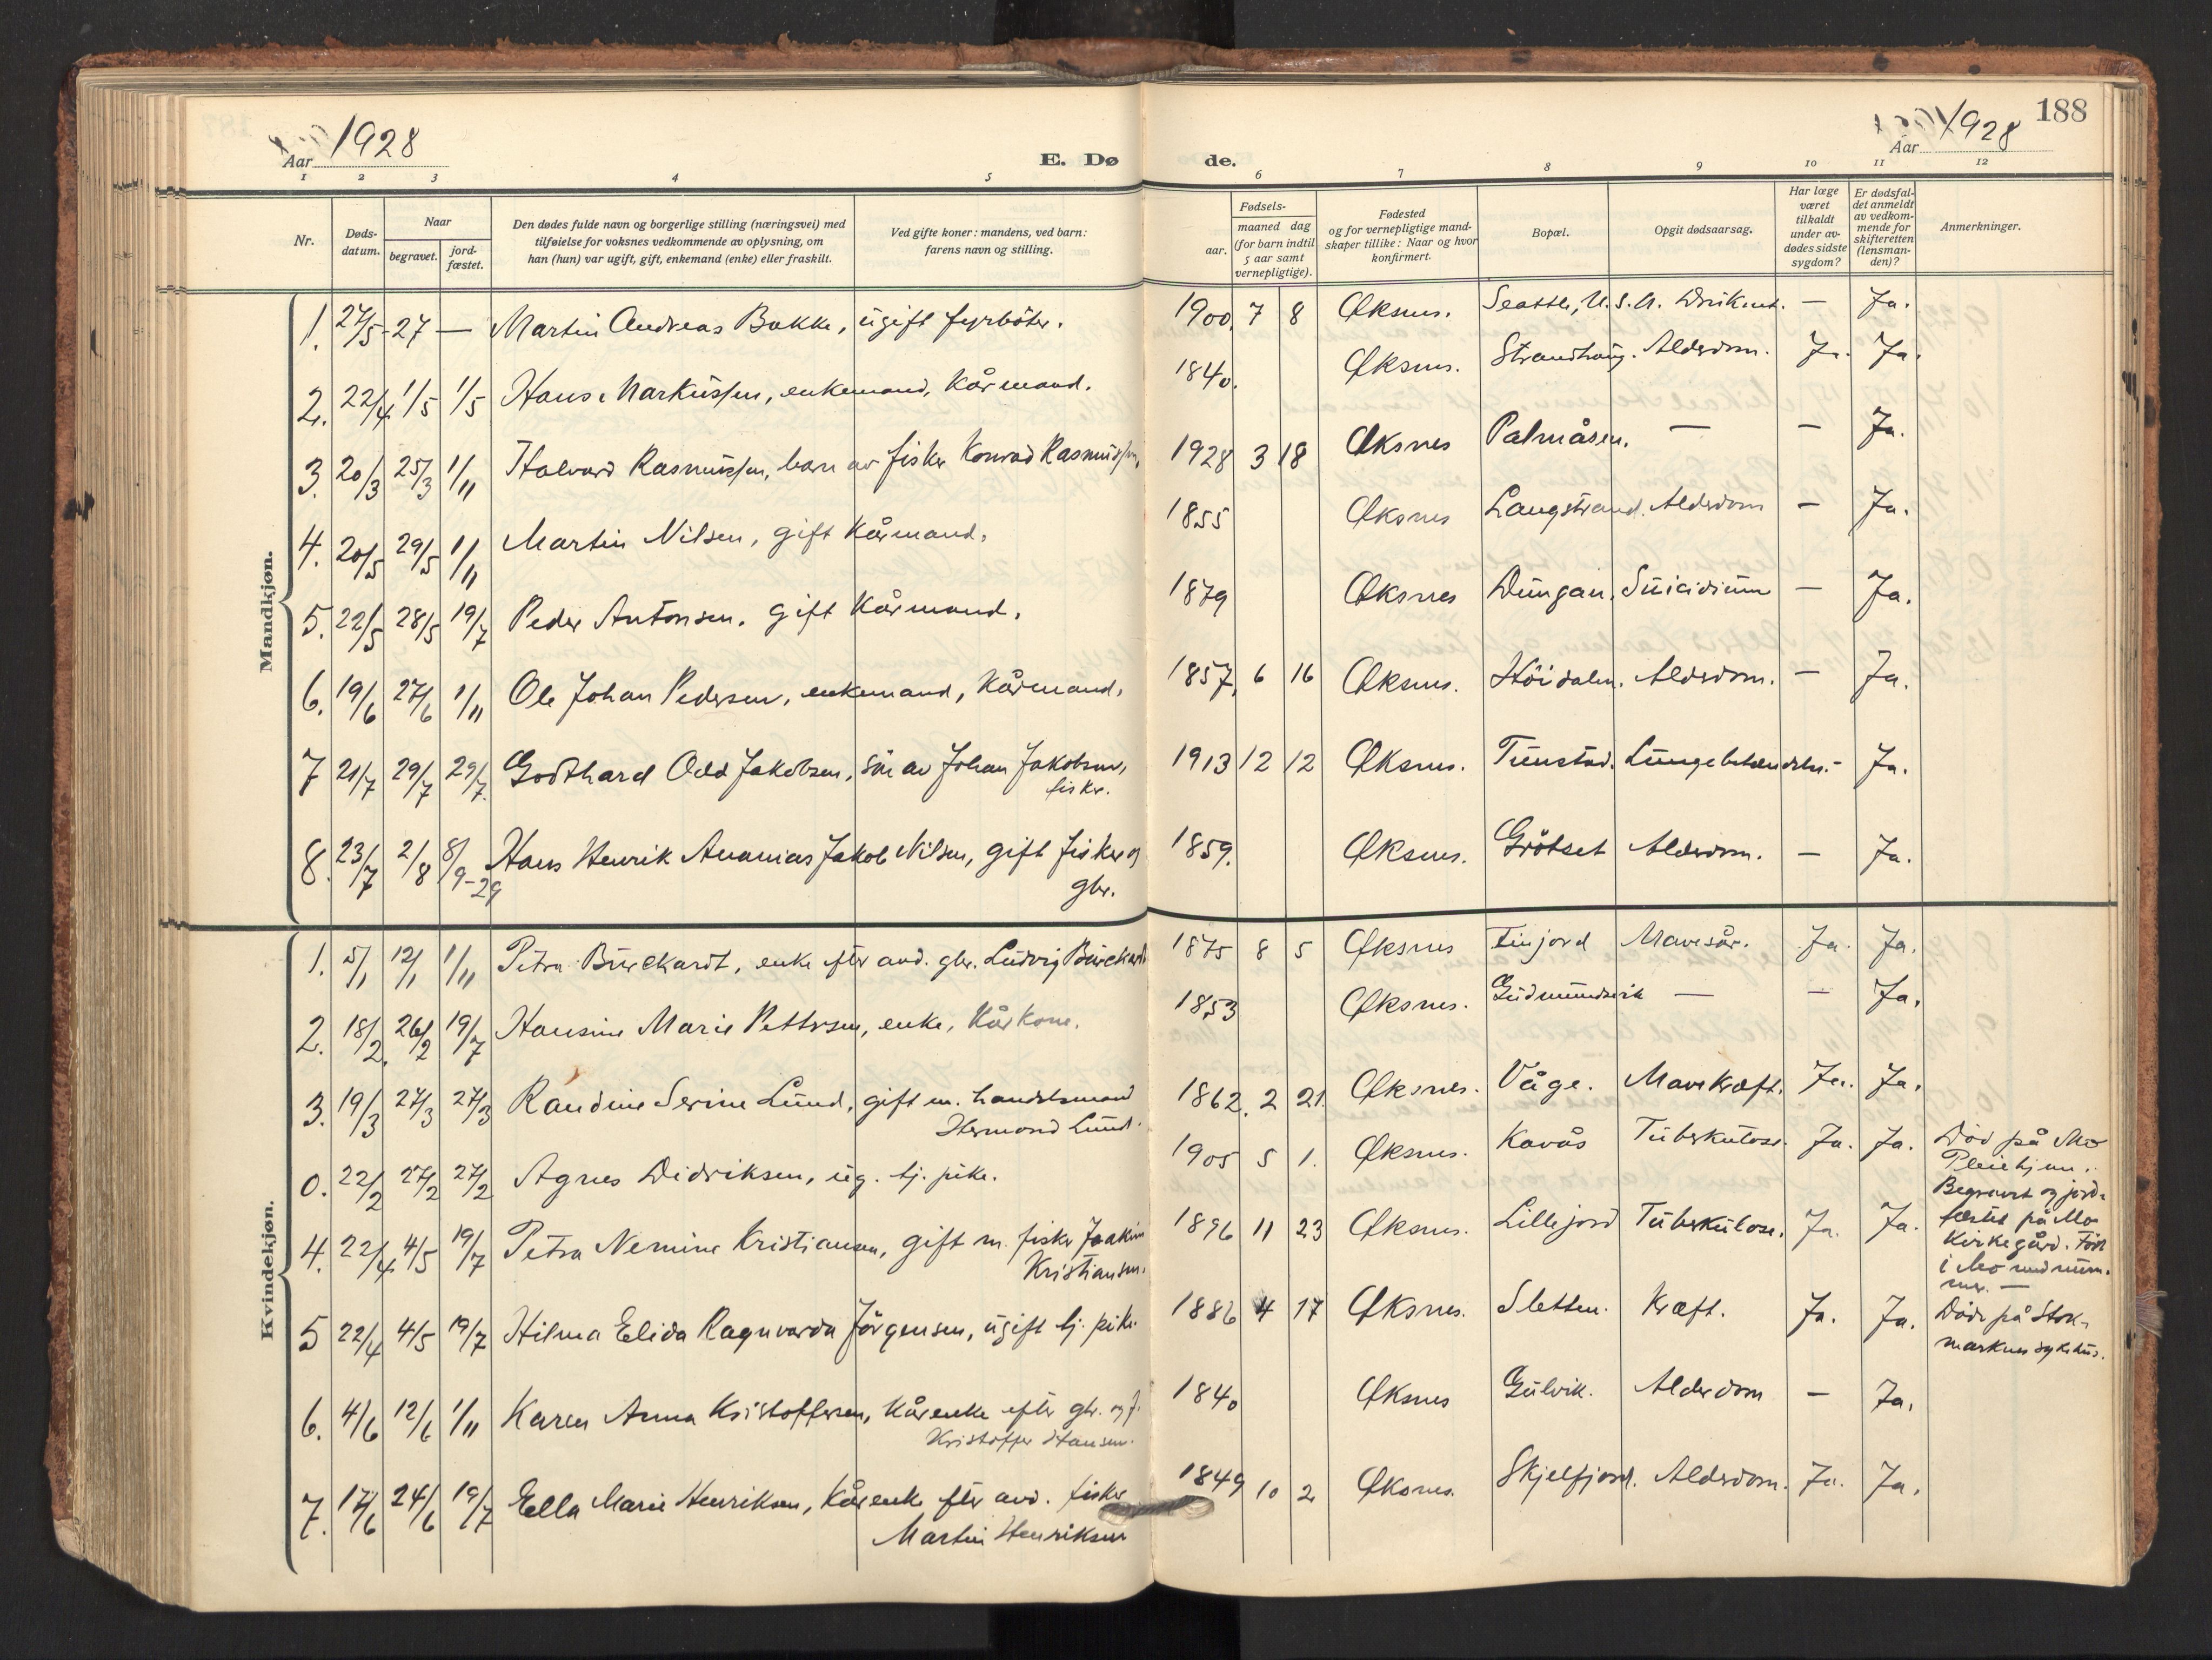 Aar 1928
E. Dø
de.
Aar 1928
188
1 2 3 4 5 6 7 8 9 10 11 12
Nr.
Døds-
datum.
Naar
begravet.
jord-
fæstet.
Den dødes fulde navn og borgerlige stilling (næringsvei) med
tilføielse for voksnes vedkommende av oplysning, om
han (hun) var ugift, gift, enkemand (enke) eller fraskilt.
Ved gifte koner: mandens, ved barn:
farens navn og stilling.
Fødsels-
aar.
maaned dag
(for barn indtil
5 aar samt
vernepligtige).
Fødested
og for vernepligtige mand-
skaper tillike: Naar og hvor
konfirmert.
Bopæl.
Opgit dødsaarsag.
Har læge
været
tilkaldt
under av-
dødes sidste
sygdom?
Er dødsfal-
det anmeldt
av vedkom-
mende for
skifteretten
(lensman-
den)?
Anmerkninger.
Mandkjøn.
1. 27/5-27 — Martin Andreas Bakke, ugift fyrböter. 1900. 7 8 Øksnes. Seattle, U.S.A. Druknet. — Ja.
2. 22/4 1/5 1/5 Hans Markussen, enkemand, Kårmand. 1840. Øksnes. Strandhaug. Alderdom. Ja. Ja.
3. 20/3 25/3 1/11 Halvard Rasmussen, barn av fisker Konrad Rasmussen. 1928 3 18 Øksnes Palmåsen. — — Ja.
4. 20/5 29/5 1/11 Martin Nilsen, gift Kårmand. 1855 Øksnes Langstrand. Alderdom — Ja.
5. 22/5 28/5 19/7 Peder Antonsen. gift Kårmand. 1879 Øksnes Dungan. Suicidium — Ja.
6. 19/6 27/6 1/11 Ole Johan Pedersen, enkemand, Kårmand. 1857. 6 16 Øksnes. Höidalen. Alderdom. — Ja.
7 21/7 29/7 29/7. Godthard Odd Jakobsen, sön av Johan Jakobsen, 1913 12 12 Øksnes. Tunstad. Lungebetændelse. — Ja.
fisker.
8. 23/7 2/8 8/9-29 Hans Henrik Ananias Jakob Nilsen, gift fisker og 1859. Øksnes. Grötset Alderdom. — Ja.
gbr.
Kvindekjøn.
1. 5/1 12/1 1/11 Petra Burchardt, enke efter avd. gbr. Ludvig Burchardt 1875 8 5 Øksnes Tinjord Mavesår. Ja. Ja.
2. 18/2. 26/2 19/7 Hansine Marie Pettersen, enke, Kårkone. 1853 Øksnes. Gudmundsvik — — Ja.
3. 19/3 27/3 27/3 Raudine Serine Lund, gift m. handelsmand 1862. 2 21. Øksnes. Våge. Mavekræft. Ja. Ja.
Hermond Lund.
0. 22/2 27/2 27/2 Agnes Didriksen, ug. tj. pike. 1905 5 1. Øksnes. Kavås Tuberkulose. Ja. Ja. Död på Mo
Pleiehjem.
Begravet og jord-
fæstet på Mo
Kirkegård. Fört
i Mo med num-
mer. —
4. 22/4 4/5 19/7 Petra Nemine Kristiansen, gift m. fisker Joakim 1896 11 23 Øksnes. Lillejord Tuberkulose. Ja. Ja.
Kristiansen.
5 22/4 4/5 19/7 Hilma Elida Ragnvarda Jörgensen, ugift tj. pike. 1886 4 17 Øksnes. Sletten. Kræft. Ja. Ja. Döde på Stok-
marknes sykehus.
6. 4/6 12/6 1/11 Karen Anna Kristoffersen, Kårenke efter gbr. og f. 1840 Øksnes Gulvik. Alderdom — Ja.
Kristoffer Hansen.
7. 17/6 24/6 19/7 Ella Marie Henriksen, Kårenke efter avd. fisker 1849 10 2 Øksnes. Skjelfjord. Alderdom. Ja. Ja.
Martin Henriksen